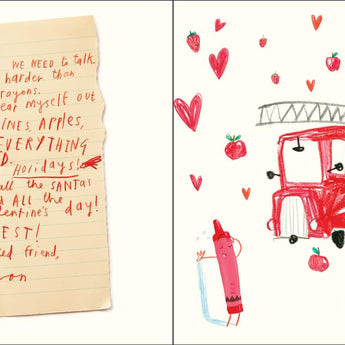 WE NEED TO talk.
harder than
rayons.
ear myself out
INES, APPles,
EVERYTHING
D.
Holidays!
all the SANTAS
ALL the
entine's day!
EST!
ed friend,
on